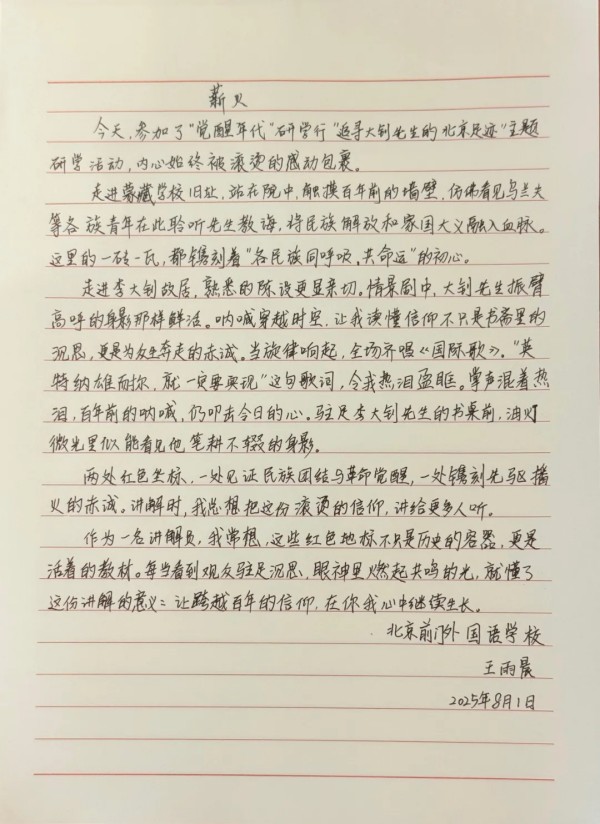 薪火
今天,参加了"觉醒年代"研学行"追寻大钊先生的北京足迹"主题
研学活动,内心始终被滚烫的感动包裹。
走进蒙藏学校旧址,站在院中,触摸百年前的墙壁,仿佛看见乌兰夫
等各族青年在此聆听先生教诲,将民族解放和家国大义融入血脉。
这里的一砖一瓦,都镌刻着"各民族同呼吸,共命运"的初心。
走进李大钊故居,熟悉的陈设更显亲切。情景剧中,大钊先生振臂
高呼的身影那样鲜活。呐喊穿越时空,让我读懂信仰不只是书斋里的
沉思,更是为众生奔走的赤诚。当旋律响起,全场齐唱《国际歌》,"英
特纳雄耐尔,就一定要实现"这句歌词,令我热泪盈眶。掌声混着热
泪,百年前的呐喊,仍叩击今日的心。驻足李大钊先生的书桌前,油灯
微光里似能看见他笔耕不辍的身影。
两处红色坐标,一处见证民族团结与革命觉醒,一处镌刻先驱播
火的赤诚。讲解时,我总想把这份滚烫的信仰,讲给更多人听。
作为一名讲解员,我常想,这些红色地标不只是历史的容器,更是
活着的教材。每当看到观众驻足沉思,眼神里燃起共鸣的光,就懂了
这份讲解的意义:让跨越百年的信仰,在你我心中继续生长。
北京前门外国语学校
王雨晨
2025年8月1日